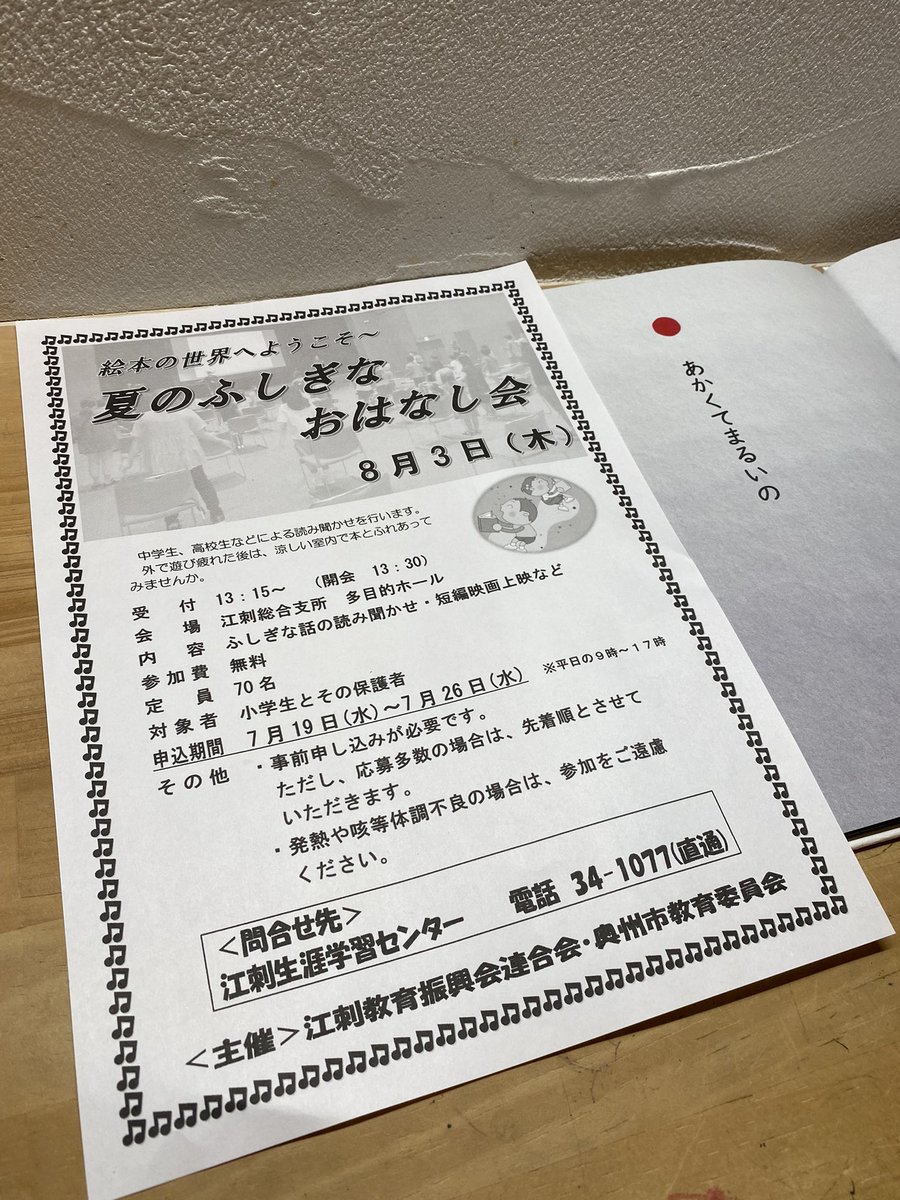 絵本の世界へようこそ～
夏のふしぎな
おはなし会
8月3日(木)
中学生、高校生などによる読み聞かせを行います。
外で遊び疲れた後は、涼しい室内で本とふれあって
みませんか。
受付 13：15～ (開会 13：30)
会場 江刺総合支所 多目的ホール
内容 ふしぎな話の読み聞かせ・短編映画上映など
参加費 無料
定員 70名
対象者 小学生とその保護者
申込期間 7月19日(水)～7月26日(水) ※平日の9時～17時
その他 ・事前申し込みが必要です。
ただし、応募多数の場合は、先着順とさせて
いただきます。
・発熱や咳等体調不良の場合は、参加をご遠慮
ください。
＜問合せ先＞
江刺生涯学習センター 電話 34-1077(直通)
＜主催＞江刺教育振興会連合会・奥州市教育委員会
あかくてまるいの